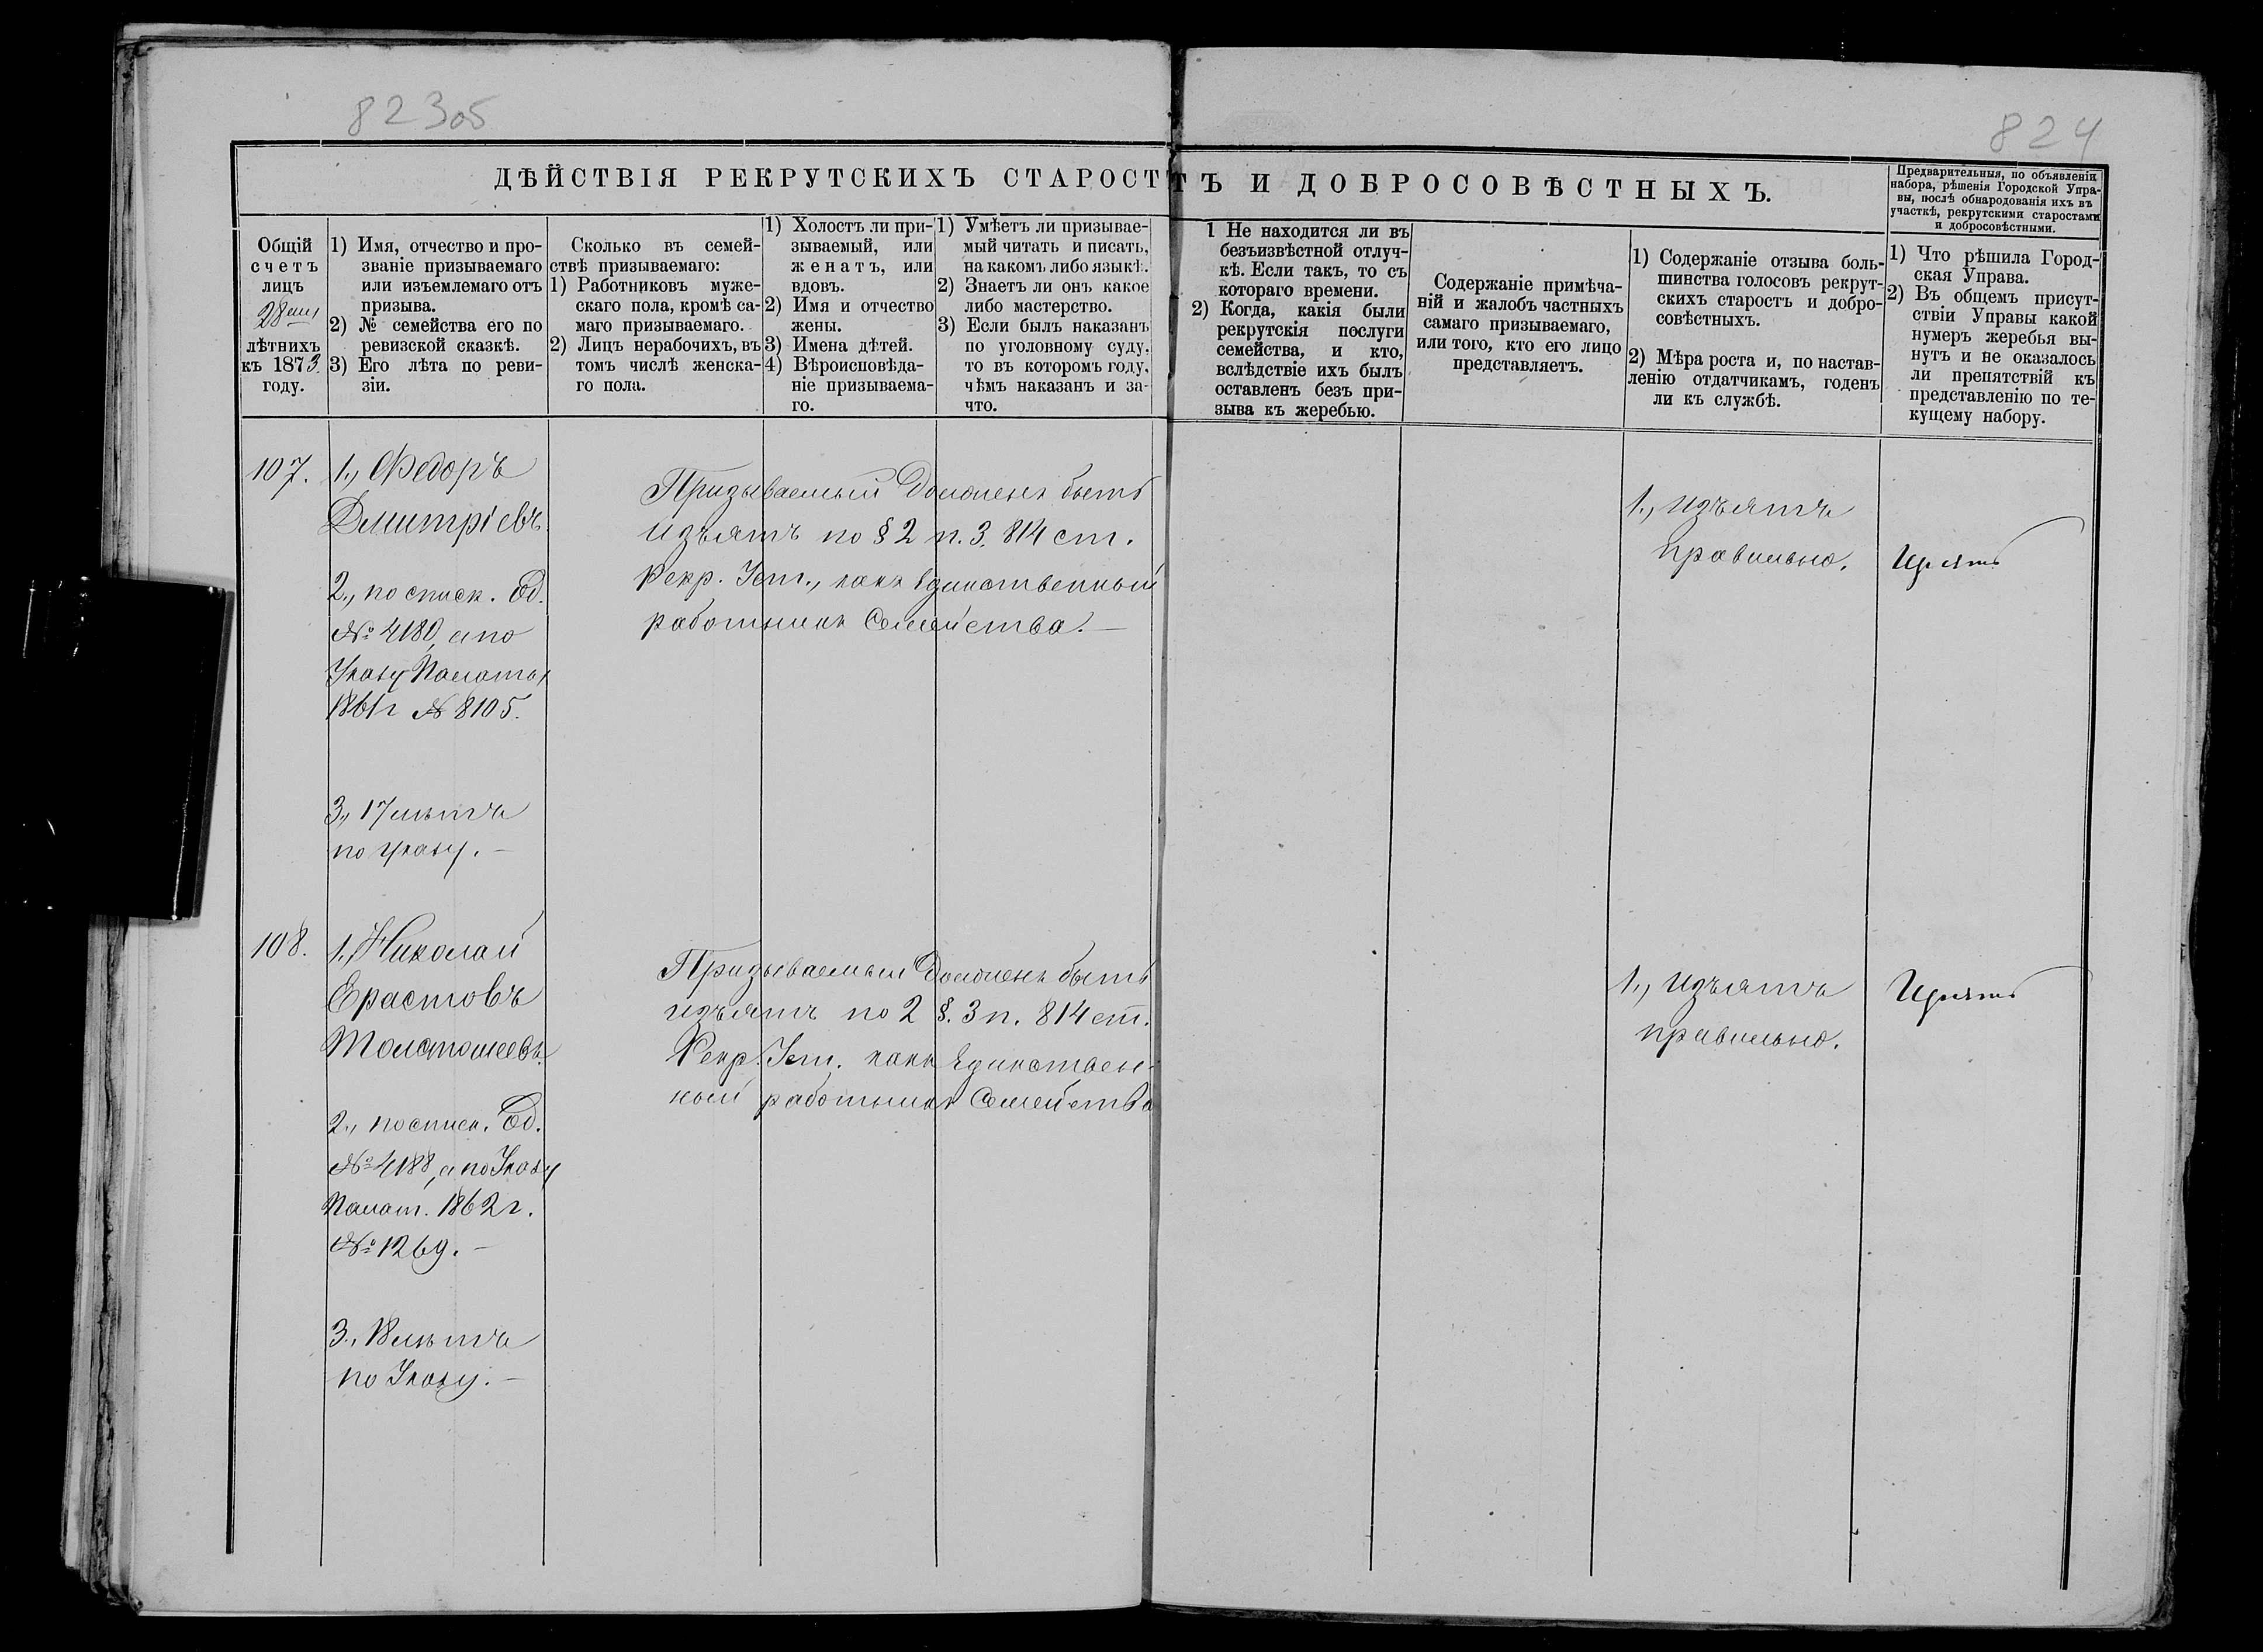 823об
824
ДѢЙСТВІЯ РЕКРУТСКИХЪ СТАРОСТЪ И ДОБРОСОВѢСТНЫХЪ.
Предварительныя, по объявленіи
набора, рѣшенія Городской Упра-
вы, послѣ обнародованія ихъ въ
участкѣ, рекрутскими старостами
и добросовѣстными.
Общій
счетъ
лицъ
28
лѣтнихъ
къ 1873
году.
1) Имя, отчество и про-
званіе призываемаго
или изъемлемаго отъ
призыва.
2) № семейства его по
ревизской сказкѣ.
3) Его лѣта по реви-
зіи.
Сколько въ семей-
ствѣ призываемаго:
1) Работниковъ муже-
скаго пола, кромѣ са-
маго призываемаго.
2) Лицъ нерабочихъ, въ
томъ числѣ женска-
го пола.
1) Холостъ ли при-
зываемый, или
женатъ, или
вдовъ.
2) Имя и отчество
жены.
3) Имена дѣтей.
4) Вѣроисповѣда-
ніе призываема-
го.
1) Умѣетъ ли призывае-
мый читать и писать,
на какомъ либо языкѣ.
2) Знаетъ ли онъ какое
либо мастерство.
3) Если былъ наказанъ
по уголовному суду,
то въ которомъ году,
чѣмъ наказанъ и за-
что.
1 Не находится ли въ
безъизвѣстной отлуч-
кѣ. Если такъ, то съ
котораго времени.
2) Когда, какія были
рекрутскія послуги
семейства, и кто,
вслѣдствіе ихъ былъ
оставленъ безъ при-
зыва къ жеребью.
Содержаніе примѣча-
ній и жалобъ частныхъ
самаго призываемаго,
или того, кто его лицо
представляетъ.
1) Содержаніе отзыва боль-
шинства голосовъ рекрут-
скихъ старостъ и добро-
совѣстныхъ.
2) Мѣра роста и, по настав-
ленію отдатчикамъ, годенъ
ли къ службѣ.
1) Что рѣшила Город-
ская Управа.
2) Въ общемъ присут-
ствіи Управы какой
нумеръ жеребья вы-
нутъ и не оказалось
ли препятствій къ
представленію по те-
кущему набору.
107.
1., Федоръ
Дмитріевъ
2., по списк. Ед.
№ 4180, а по
Указу Палаты
1861г № 8105.
3., 17 лѣтъ
по указу. —
Призываемый Долженъ быть
изъятъ по § 2 п. 3. 814 ст.
Рекр. Уст., какъ Единственный
работникъ Семейства. —
1., Изъятъ
правильно.
108.
1., Николай
Ерастовъ
2., по списк. Ед.
№ 4188, а по Указу
Палат. 1862 г.
№ 1269. —
3., 18 лѣтъ
по Указу. —
Призываемый Долженъ быть
изъятъ по 2 §. 3 п. 814 ст.
Рекр. Уст. какъ Единствен-
ный работникъ Семейства
1., Изъятъ
правильно.